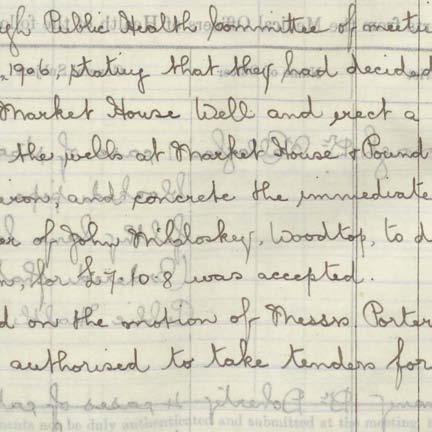 gh Public Health Committee of meeti
1906, stating that they had decided
Market House Well and erect a
the wells at Market House & Pound
iron, and concrete the immediate
of John McCloskey, Woodtop, to d
for £7.10.8 was accepted.
d on the motion of Messrs. Porter
authorised to take tenders for
ments not be duly authenticated and submitted at the meeting